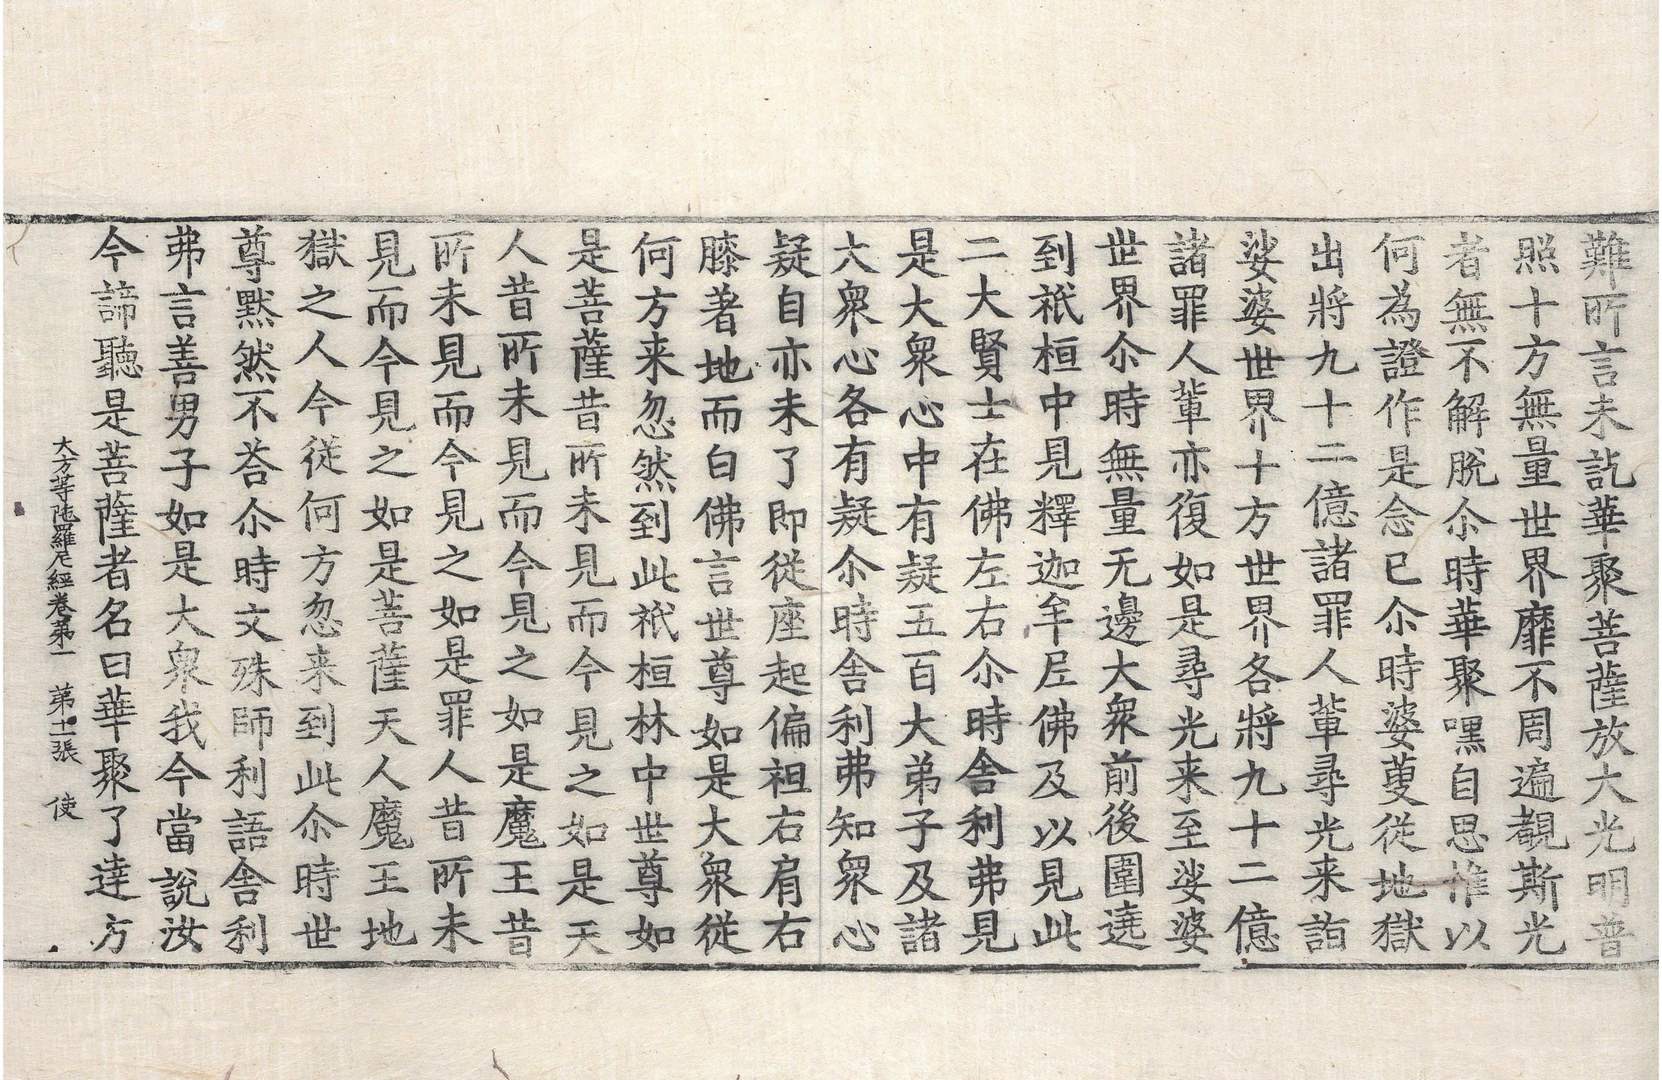 難所言未訖華聚菩薩放大光明普
照十方無量世界靡不周遍覩斯光
者無不解脫尒時華聚嘿自思惟以
何為證作是念已尒時婆蒦從地獄
出將九十二億諸罪人輩尋光来詣
娑婆世界十方世界各將九十二億
諸罪人輩亦復如是尋光来至娑婆
世界尒時無量无邊大衆前後圍遶
到祇桓中見釋迦牟尼佛及以見此
二大賢士在佛左右尒時舍利弗見
是大衆心中有疑五百大弟子及諸
大衆心各有疑尒時舍利弗知衆心
疑自亦未了即從座起偏袒右肩右
膝著地而白佛言世尊如是大衆從
何方来忽然到此祇桓林中世尊如
是菩薩昔所未見而今見之如是天
人昔所未見而今見之如是魔王昔
所未見而今見之如是罪人昔所未
見而今見之如是菩薩天人魔王地
獄之人今從何方忽来到此尒時世
尊黙然不荅尒時文殊師利語舍利
弗言善男子如是大衆我今當說汝
今諦聽是菩薩者名曰華聚了達方
大方等陁羅尼經卷第一 第十二張 使